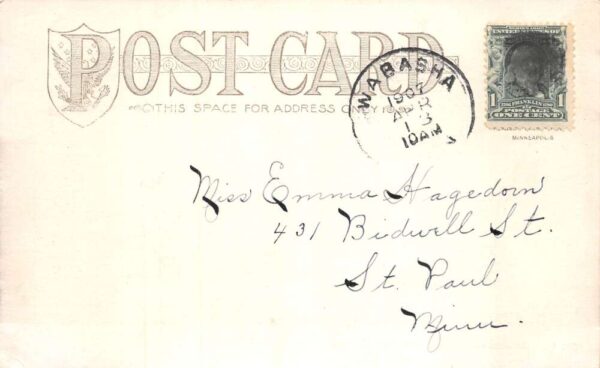 POST CARD
THIS SPACE FOR ADDRESS ONLY
WABASHA
1907
APR
13
10AM
UNITED STATES OF AMERICA
1 FRANKLIN 1
POSTAGE
ONE CENT
MINNEAPOLIS
Miss Emma Hagedorn
431 Bidwell St.
St. Paul
Minn.